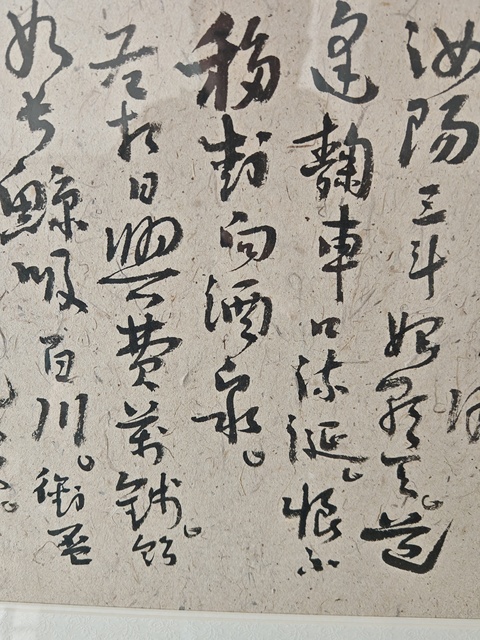 汝陽三斗始朝天。道
逢麴車口流涎。恨不
移封向酒泉。
左相日興費萬錢。飲
如長鯨吸百川。銜盃